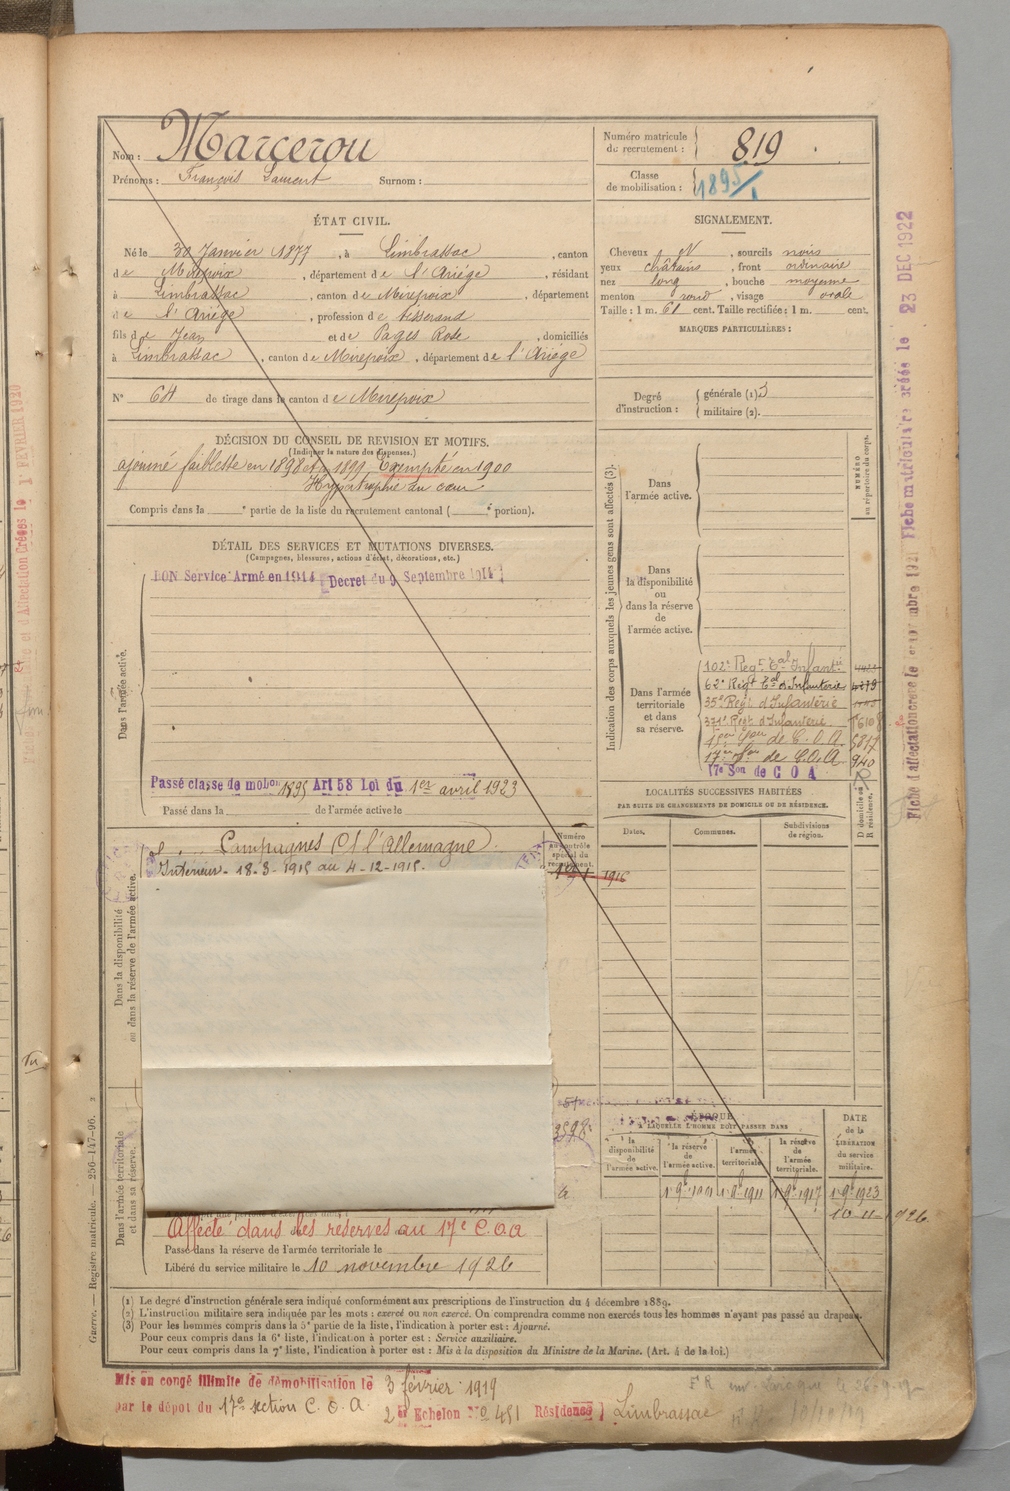 Nom : Marcerou
Prénoms : François Laurent Surnom :
Numéro matricule du recrutement : 819
Classe de mobilisation : 1895/1
ÉTAT CIVIL.
Né le 30 Janvier 1877, à Limbrassac, canton
de Mirepoix, département de l'Ariège, résidant
à Limbrassac, canton de Mirepoix, département
de l'Ariège, profession de tisserand
fils de Jean et de Pages Rose, domiciliés
à Limbrassac, canton de Mirepoix, département de l'Ariège
N° 64 de tirage dans le canton de Mirepoix
SIGNALEMENT.
Cheveux N, sourcils noirs
yeux châtains, front ordinaire
nez long, bouche moyenne
menton rond, visage ovale
Taille : 1 m. 61 cent. Taille rectifiée : 1 m. cent.
MARQUES PARTICULIÈRES :
Degré d'instruction : générale (1) 3
militaire (2).
DÉCISION DU CONSEIL DE REVISION ET MOTIFS.
(Indiquer la nature des dispenses.)
ajourné faiblesse en 1898 et 1899, Exempté en 1900
Hypertrophie du cœur
Compris dans la e partie de la liste du recrutement cantonal ( e portion).
DÉTAIL DES SERVICES ET MUTATIONS DIVERSES.
(Campagnes, blessures, actions d'éclat, décorations, etc.)
BON Service Armé en 1914 Decret du 9 Septembre 1914
Dans l'armée active.
Passé classe de mobon 1895 Art 58 Loi du 1er avril 1923
Passé dans la de l'armée active le
Indication des corps auxquels les jeunes gens sont affectés (3).
NUMÉRO au répertoire du corps.
Dans l'armée active.
Dans la disponibilité ou dans la réserve de l'armée active.
Dans l'armée territoriale et dans sa réserve.
102e Regt Eal Infantie
62e Regt Eal d'Infanterie 4279
35e Regt d'Infanterie
371e Regt d'Infanterie
17e Son de C.O.A. 940
17e Son de C O A
LOCALITÉS SUCCESSIVES HABITÉES
PAR SUITE DE CHANGEMENTS DE DOMICILE OU DE RÉSIDENCE.
Dates. Communes. Subdivisions de région. D domicile ou R résidence.
Campagnes Ct l'Allemagne
Intérieur - 18-3-1915 au 4-12-1915.
Numéro au contrôle spécial du recrutement.
Dans la disponibilité ou dans la réserve de l'armée active.
Dans l'armée territoriale et dans sa réserve.
ÉPOQUE
À LAQUELLE L'HOMME DOIT PASSER DANS
la disponibilité de l'armée active. la réserve de l'armée active. l'armée territoriale. la réserve de l'armée territoriale. DATE de la LIBÉRATION du service militaire.
1 9bre 1901 1 9bre 1911 1 9bre 1917 1 9bre 1923
10-11-1926
Affecté dans les reserves au 17e C.O.A
Passé dans la réserve de l'armée territoriale le
Libéré du service militaire le 10 novembre 1926
(1) Le degré d'instruction générale sera indiqué conformément aux prescriptions de l'instruction du 4 décembre 1889.
(2) L'instruction militaire sera indiquée par les mots : exercé ou non exercé. On comprendra comme non exercés tous les hommes n'ayant pas passé au drapeau.
(3) Pour les hommes compris dans la 5e partie de la liste, l'indication à porter est : Ajourné.
Pour ceux compris dans la 6e liste, l'indication à porter est : Service auxiliaire.
Pour ceux compris dans la 7e liste, l'indication à porter est : Mis à la disposition du Ministre de la Marine. (Art. 4 de la loi.)
Mis en congé illimité de démobilisation le 3 février 1919
par le dépôt du 17e section C. O. A. 2e Echelon No 451 Résidence Limbrassac
Guerre. — Registre matricule. — 256-147-96.
Fiche matricule créée le 23 DEC 1922